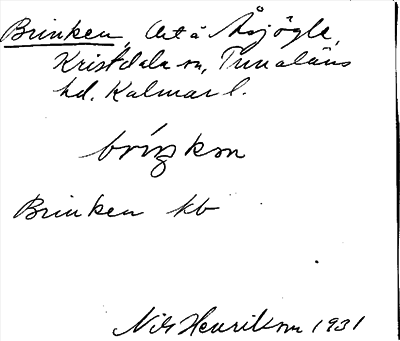 Brinken, Ut å Åsjögle,
Kristdala sn, Tunaläns
hd. Kalmar l.
briŋkən
Brinken kb
Nils Henrikson 1931